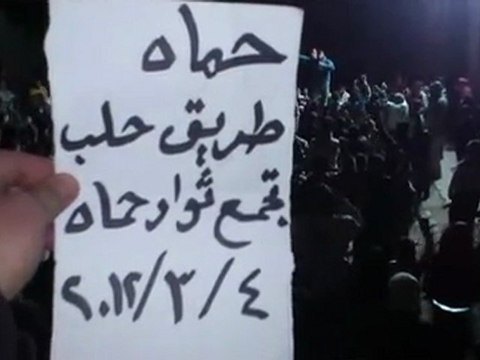 حماه
طريق حلب
تجمع ثوار حماه
٢٠١٢/٣/٤